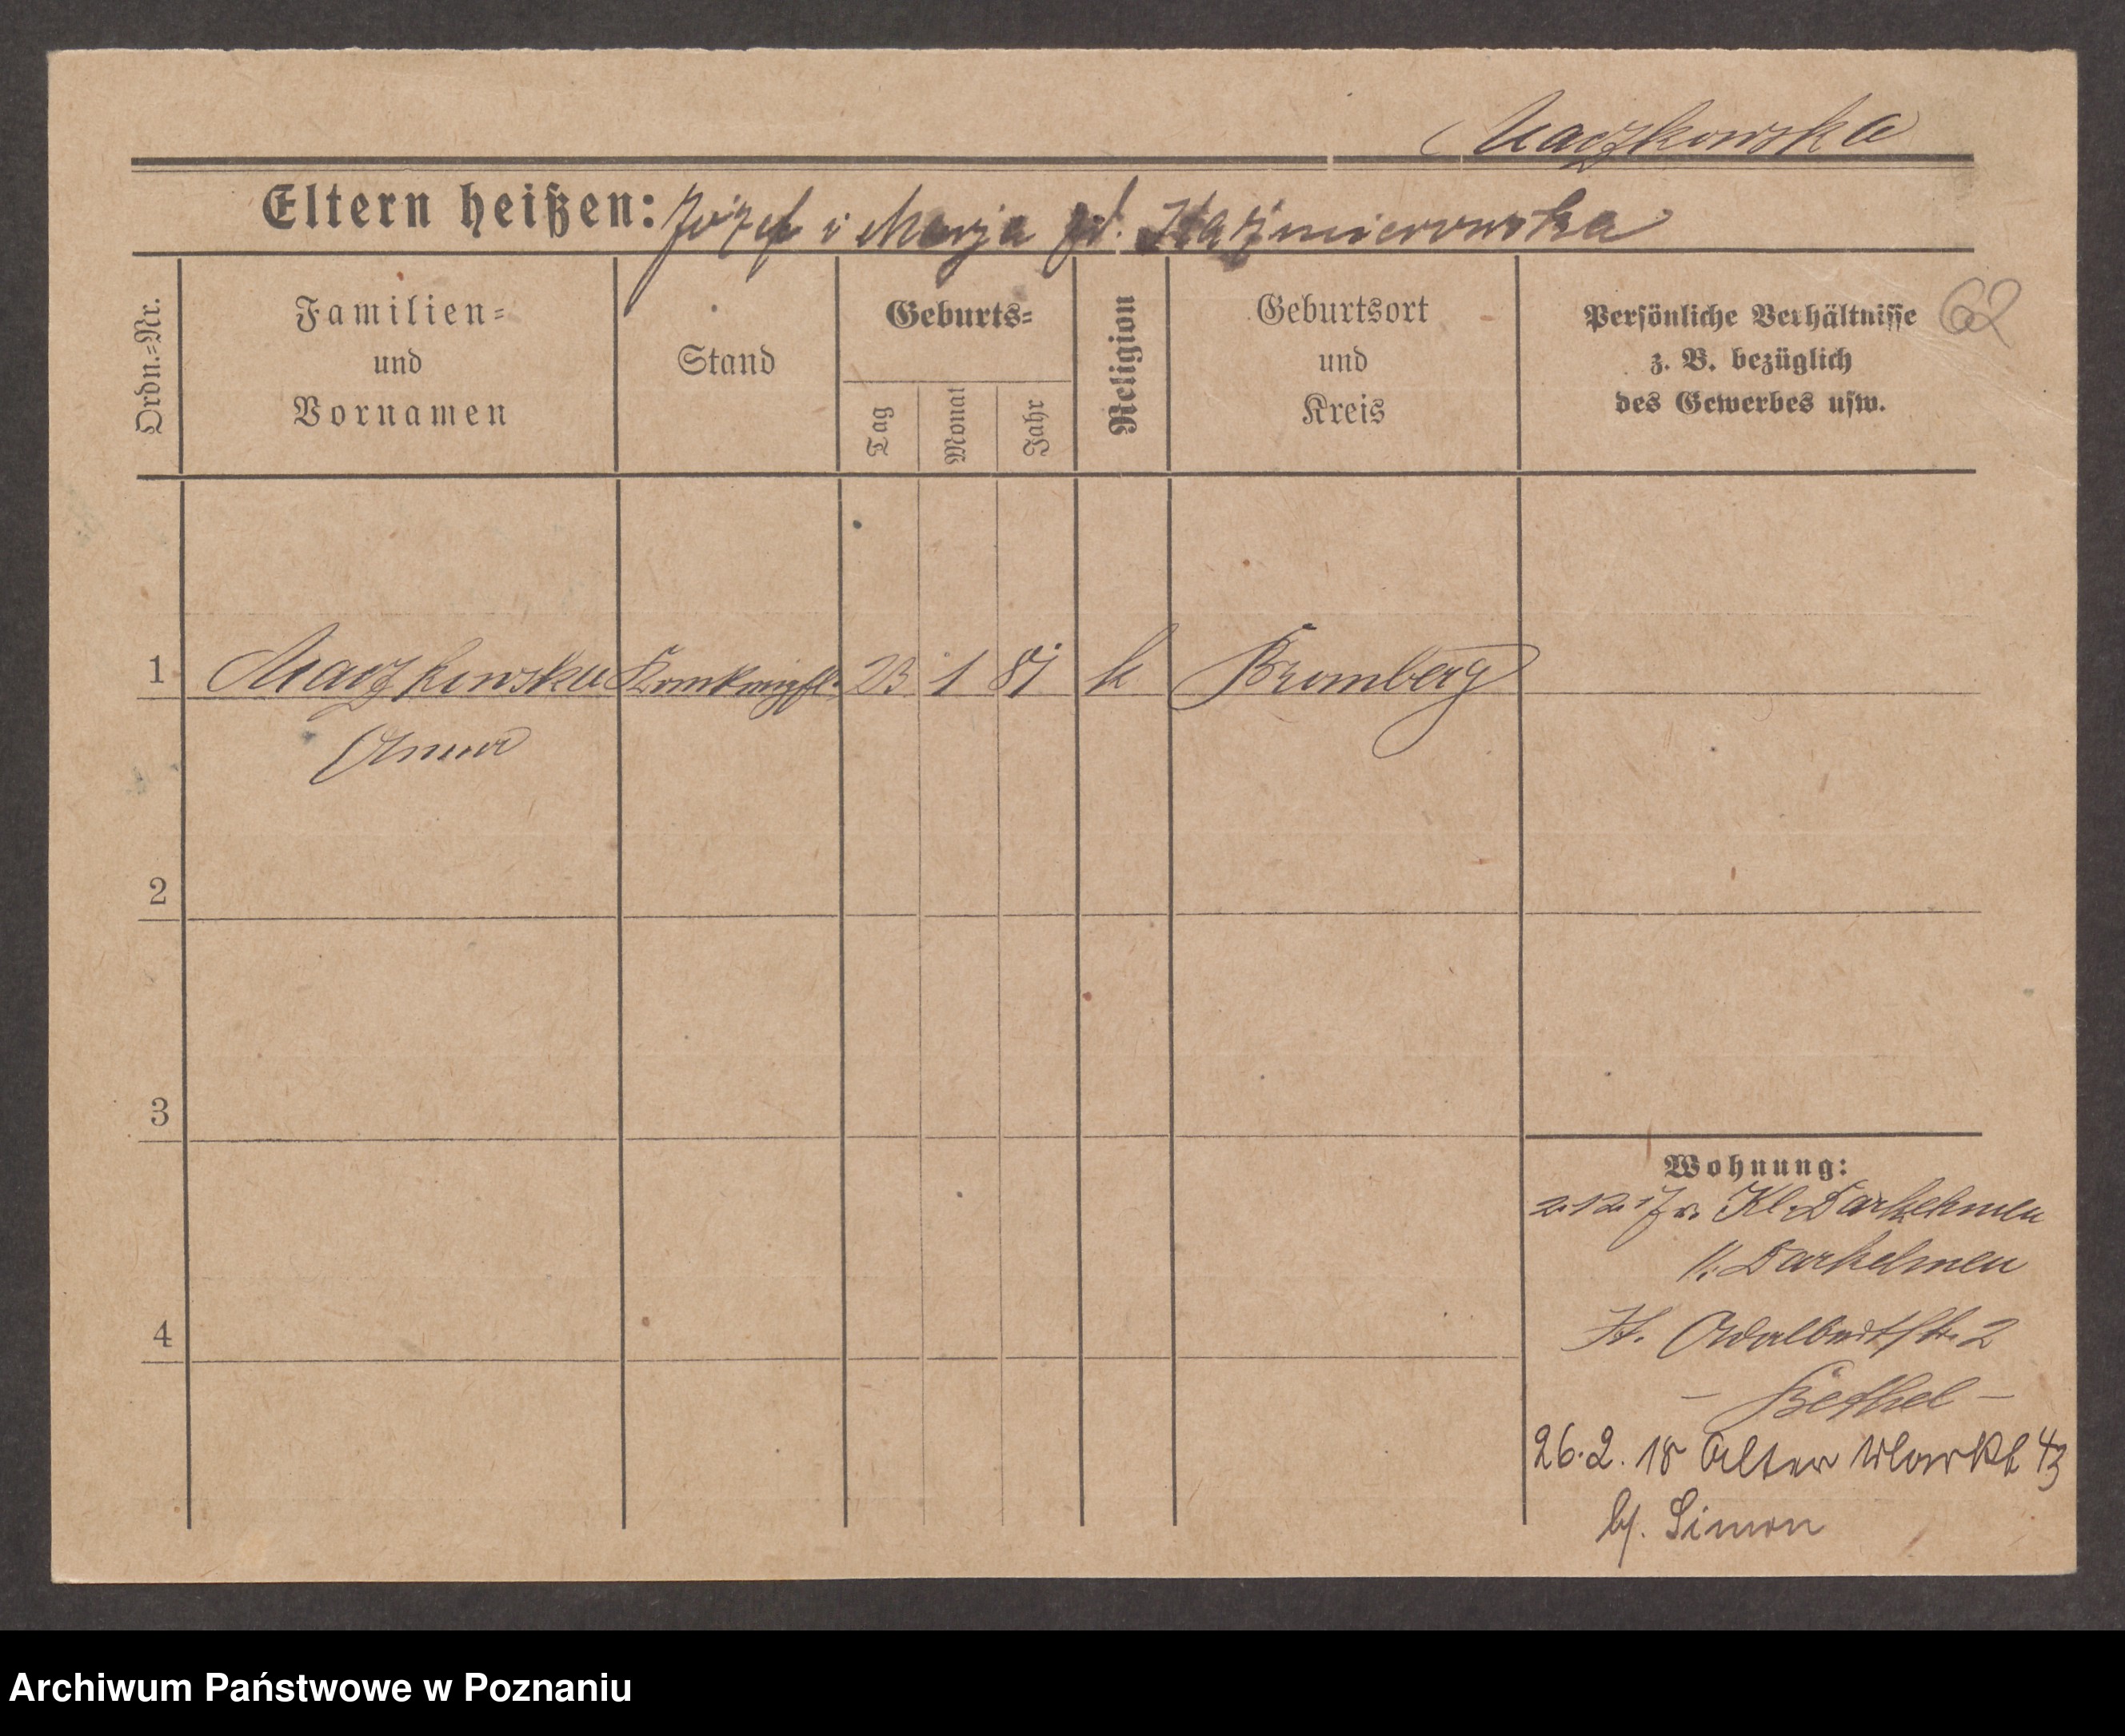 Maczkowska
Eltern heißen: Józef i Marja Kaźmierowska
Ordn.=Nr.
Familien=
und
Vornamen
Stand
Geburts=
Tag
Monat
Jahr
Religion
Geburtsort
und
Kreis
Persönliche Verhältnisse
z. B. bezüglich
des Gewerbes usw.
62
1 Maczkowska 23 1 k Bromberg
Anna
2
3
4
Wohnung:
2.12.17 v. Kl. Darkehmen
Darkehmen
Adalbertstr. 2
– Bethel –
26.2.18 Alter Markt 43
b/. Simon
Archiwum Państwowe w Poznaniu